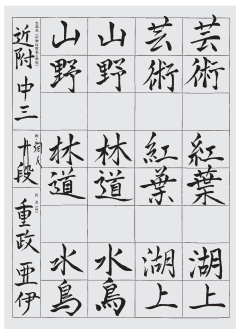 芸術 紅葉 湖上
芸術 紅葉 湖上
山野 林道 水鳥
山野 林道 水鳥
近附 中三 個人 十段 重政 亜伊